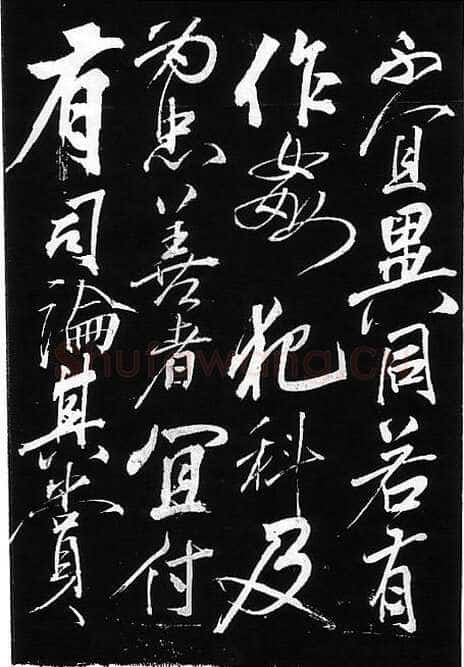 不宜異同若有
作姦犯科及
為忠善者宜付
有司論其賞
shufawang.cn